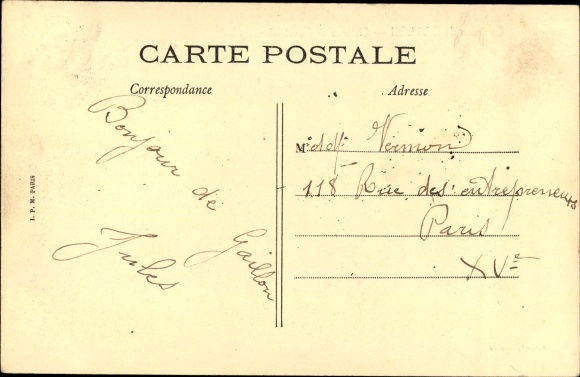 CARTE POSTALE
Correspondance
Adresse
Bonjour de Gaillon
Jules
M
Vernion
118 Rue des entrepreneurs
Paris
XVe
L. P. M. PARIS